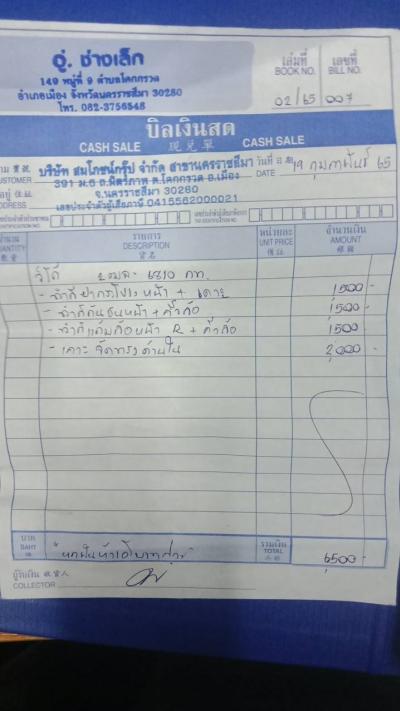 อู่. ช่างเล็ก
149 หมู่ที่ 9 ตำบลโคกกรวด
อำเภอเมือง จังหวัดนครราชสีมา 30280
โทร. 082-3756548
เล่มที่ เลขที่
BOOK NO. BILL NO.
02/65 007
บิลเงินสด
CASH SALE 現兑單 CASH SALE
นาม
CUSTOMER
บริษัท สมโภชน์กรุ๊ป จำกัด สาขานครราชสีมา
วันที่
DATE
19 กุมภาพันธ์ 65
ที่อยู่ 住址
ADDRESS
391 ม.6 ถ.มิตรภาพ ต.โคกกรวด อ.เมือง
จ.นครราชสีมา 30280
เลขประจำตัวผู้เสียภาษี 0415562000021
จำนวน รายการ หน่วยละ จำนวนเงิน
QUANTITY DESCRIPTION UNIT PRICE AMOUNT
數量 貨名 價訖 銀碼
วีโก้ 2ฒฌ-6810 กท.
- ทำสีฝากระโปรงหน้า + เคาะ 1,500-
- ทำสีกันชนหน้า + ค่าสี 1,500-
- ทำสีแก้มก้อนหน้า R + ค่าสี 1,500
- เคาะ จัดทรงด้านใน 2,000-
บาท
BAHT
หกพันห้าร้อยบาทถ้วน
รวมเงิน
TOTAL
6500-
ผู้รับเงิน 收貨人
COLLECTOR